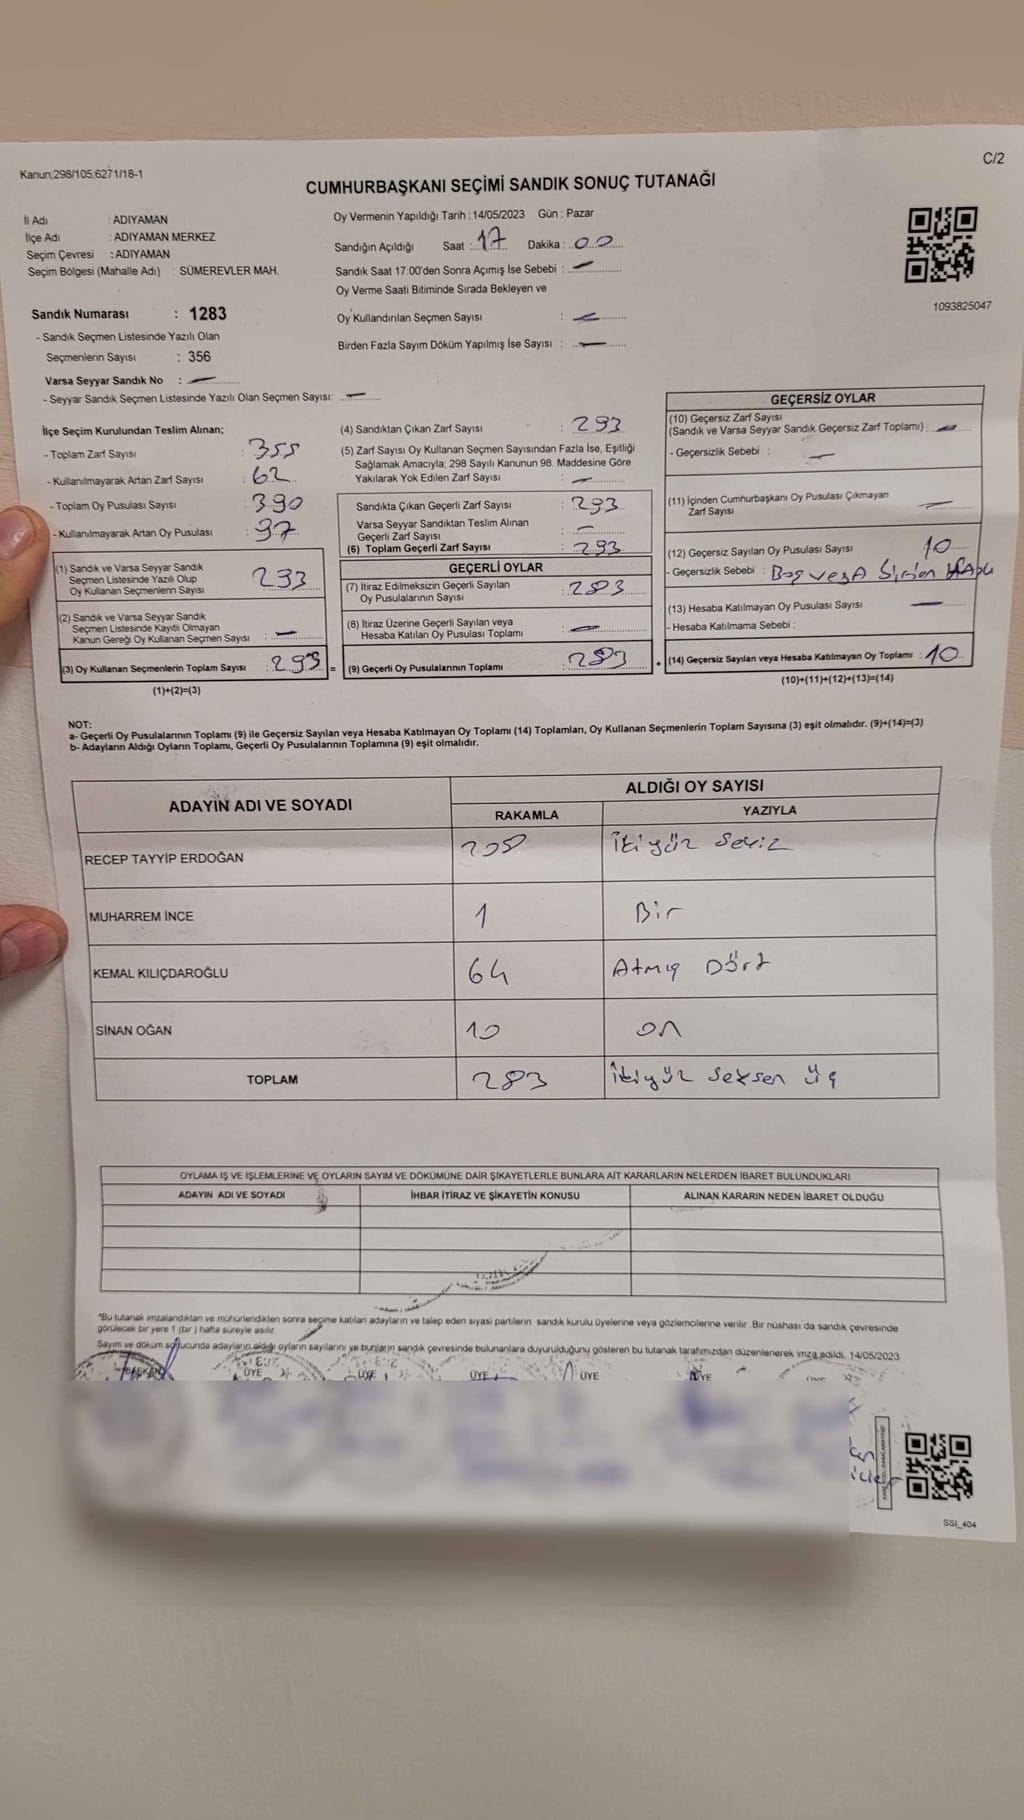 Kanun;298/105;6271/18-1
C/2
CUMHURBAŞKANI SEÇİMİ SANDIK SONUÇ TUTANAĞI
İl Adı : ADIYAMAN
İlçe Adı : ADIYAMAN MERKEZ
Seçim Çevresi : ADIYAMAN
Seçim Bölgesi (Mahalle Adı) : SÜMEREVLER MAH.
Sandık Numarası : 1283
- Sandık Seçmen Listesinde Yazılı Olan
Seçmenlerin Sayısı : 356
Varsa Seyyar Sandık No : —
- Seyyar Sandık Seçmen Listesinde Yazılı Olan Seçmen Sayısı: —
Oy Vermenin Yapıldığı Tarih : 14/05/2023 Gün : Pazar
Sandığın Açıldığı Saat : 17 Dakika : 00
Sandık Saat 17:00'den Sonra Açımış İse Sebebi : —
Oy Verme Saati Bitiminde Sırada Bekleyen ve
Oy Kullandırılan Seçmen Sayısı : —
Birden Fazla Sayım Döküm Yapılmış İse Sayısı : —
1093825047
İlçe Seçim Kurulundan Teslim Alınan;
- Toplam Zarf Sayısı : 355
- Kullanılmayarak Artan Zarf Sayısı : 62
- Toplam Oy Pusulası Sayısı : 390
- Kullanılmayarak Artan Oy Pusulası : 97
(1) Sandık ve Varsa Seyyar Sandık
Seçmen Listesinde Yazılı Olup
Oy Kullanan Seçmenlerin Sayısı 293
(2) Sandık ve Varsa Seyyar Sandık
Seçmen Listesinde Kayıtlı Olmayan
Kanun Gereği Oy Kullanan Seçmen Sayısı : —
(3) Oy Kullanan Seçmenlerin Toplam Sayısı : 293 =
(1)+(2)=(3)
(4) Sandıktan Çıkan Zarf Sayısı : 293
(5) Zarf Sayısı Oy Kullanan Seçmen Sayısından Fazla İse, Eşitliği
Sağlamak Amacıyla; 298 Sayılı Kanunun 98. Maddesine Göre
Yakılarak Yok Edilen Zarf Sayısı : —
Sandıkta Çıkan Geçerli Zarf Sayısı : 293
Varsa Seyyar Sandıktan Teslim Alınan
Geçerli Zarf Sayısı : —
(6) Toplam Geçerli Zarf Sayısı : 293
GEÇERLİ OYLAR
(7) İtiraz Edilmeksizin Geçerli Sayılan
Oy Pusulalarının Sayısı : 283
(8) İtiraz Üzerine Geçerli Sayılan veya
Hesaba Katılan Oy Pusulası Toplamı : —
(9) Geçerli Oy Pusulalarının Toplamı : 283 +
GEÇERSİZ OYLAR
(10) Geçersiz Zarf Sayısı
(Sandık ve Varsa Seyyar Sandık Geçersiz Zarf Toplamı) : —
- Geçersizlik Sebebi : —
(11) İçinden Cumhurbaşkanı Oy Pusulası Çıkmayan
Zarf Sayısı —
(12) Geçersiz Sayılan Oy Pusulası Sayısı 10
- Geçersizlik Sebebi : Boş veya
(13) Hesaba Katılmayan Oy Pusulası Sayısı : —
- Hesaba Katılmama Sebebi :
(14) Geçersiz Sayılan veya Hesaba Katılmayan Oy Toplamı : 10
(10)+(11)+(12)+(13)=(14)
NOT:
a- Geçerli Oy Pusulalarının Toplamı (9) ile Geçersiz Sayılan veya Hesaba Katılmayan Oy Toplamı (14) Toplamları, Oy Kullanan Seçmenlerin Toplam Sayısına (3) eşit olmalıdır. (9)+(14)=(3)
b- Adayların Aldığı Oyların Toplamı, Geçerli Oy Pusulalarının Toplamına (9) eşit olmalıdır.
ADAYIN ADI VE SOYADI
ALDIĞI OY SAYISI
RAKAMLA YAZIYLA
RECEP TAYYİP ERDOĞAN 208 İkiyüz Sekiz
MUHARREM İNCE 1 Bir
KEMAL KILIÇDAROĞLU 64 Atmış Dört
SİNAN OĞAN 10 on
TOPLAM 283 İkiyüz Seksen üç
OYLAMA İŞ VE İŞLEMLERİNE VE OYLARIN SAYIM VE DÖKÜMÜNE DAİR ŞİKAYETLERLE BUNLARA AİT KARARLARIN NELERDEN İBARET BULUNDUKLARI
ADAYIN ADI VE SOYADI İHBAR İTİRAZ VE ŞİKAYETİN KONUSU ALINAN KARARIN NEDEN İBARET OLDUĞU
*Bu tutanak imzalandıktan ve mühürlendikten sonra seçime katılan adayların ve talep eden siyasi partilerin sandık kurulu üyelerine veya gözlemcilerine verilir. Bir nüshası da sandık çevresinde
görülecek bir yere 1 (bir) hafta süreyle asılır.
Sayım ve döküm sonucunda adayların aldığı oyların sayılarını ve bunların sandık çevresinde bulunanlara duyurulduğunu gösteren bu tutanak tarafımızdan düzenlenerek imza edildi. 14/05/2023
BAŞKAN ÜYE ÜYE ÜYE ÜYE ÜYE
SSI_404